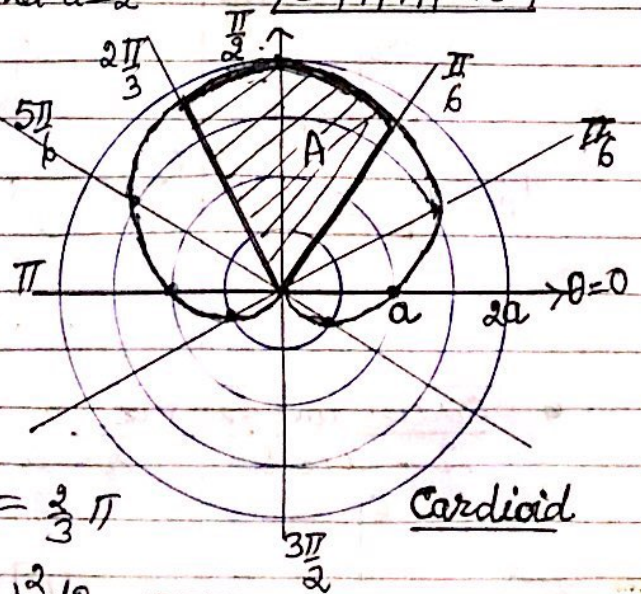 a=2
π/2
2π/3
π/6
5π/6
A
π/6
π
a
2a
θ=0
= 2/3 π
Cardioid
3π/2